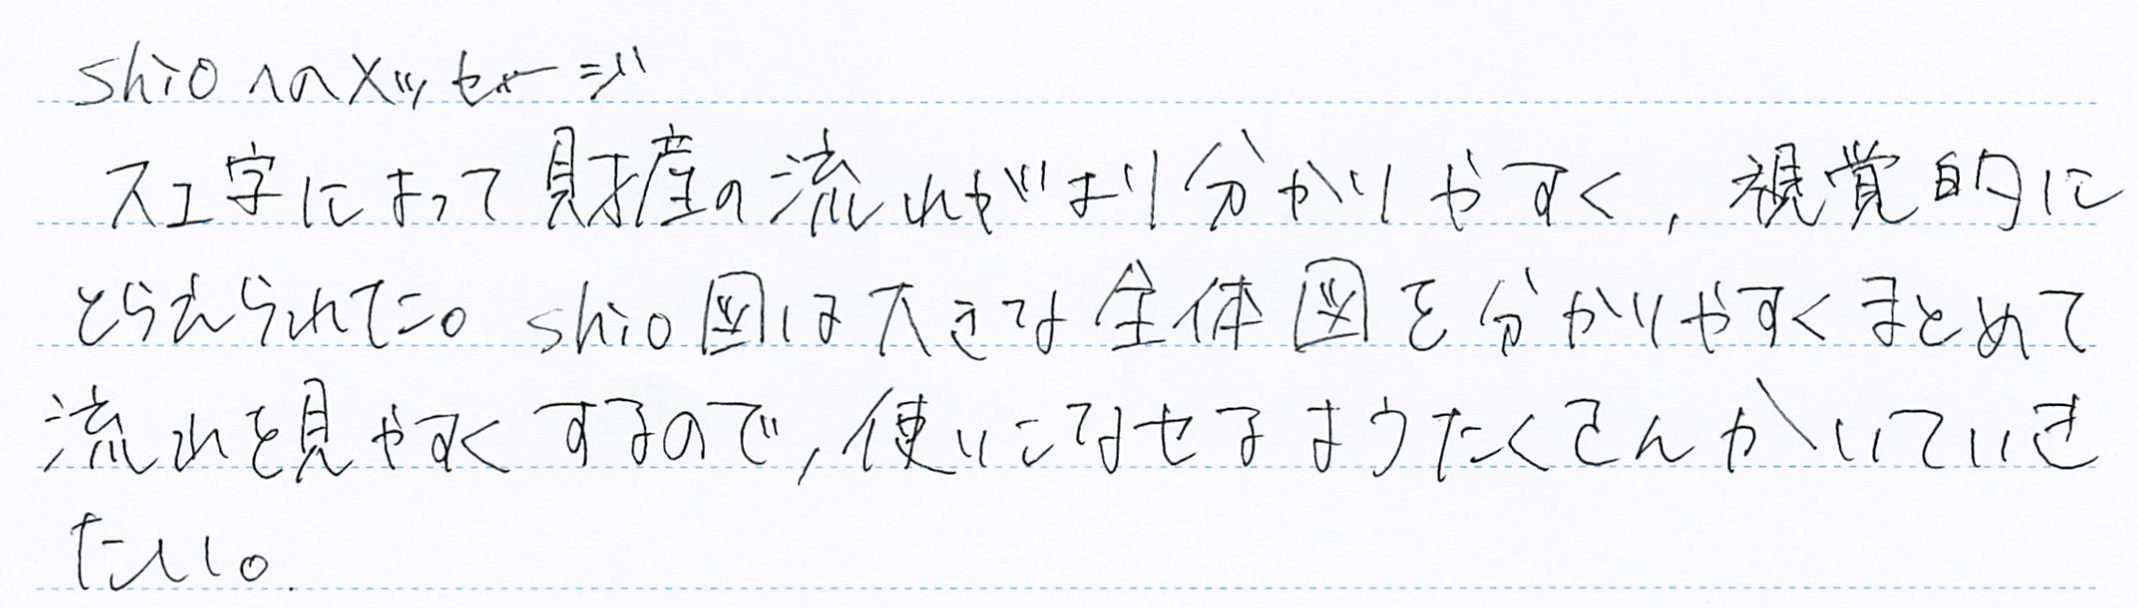 shioへのメッセージ
スエ字によって財産の流れがより分かりやすく,視覚的に
とらえられた。shio図は大きな全体図を分かりやすくまとめて
流れを見やすくするので,使いこなせるようたくさんかいていき
たい。